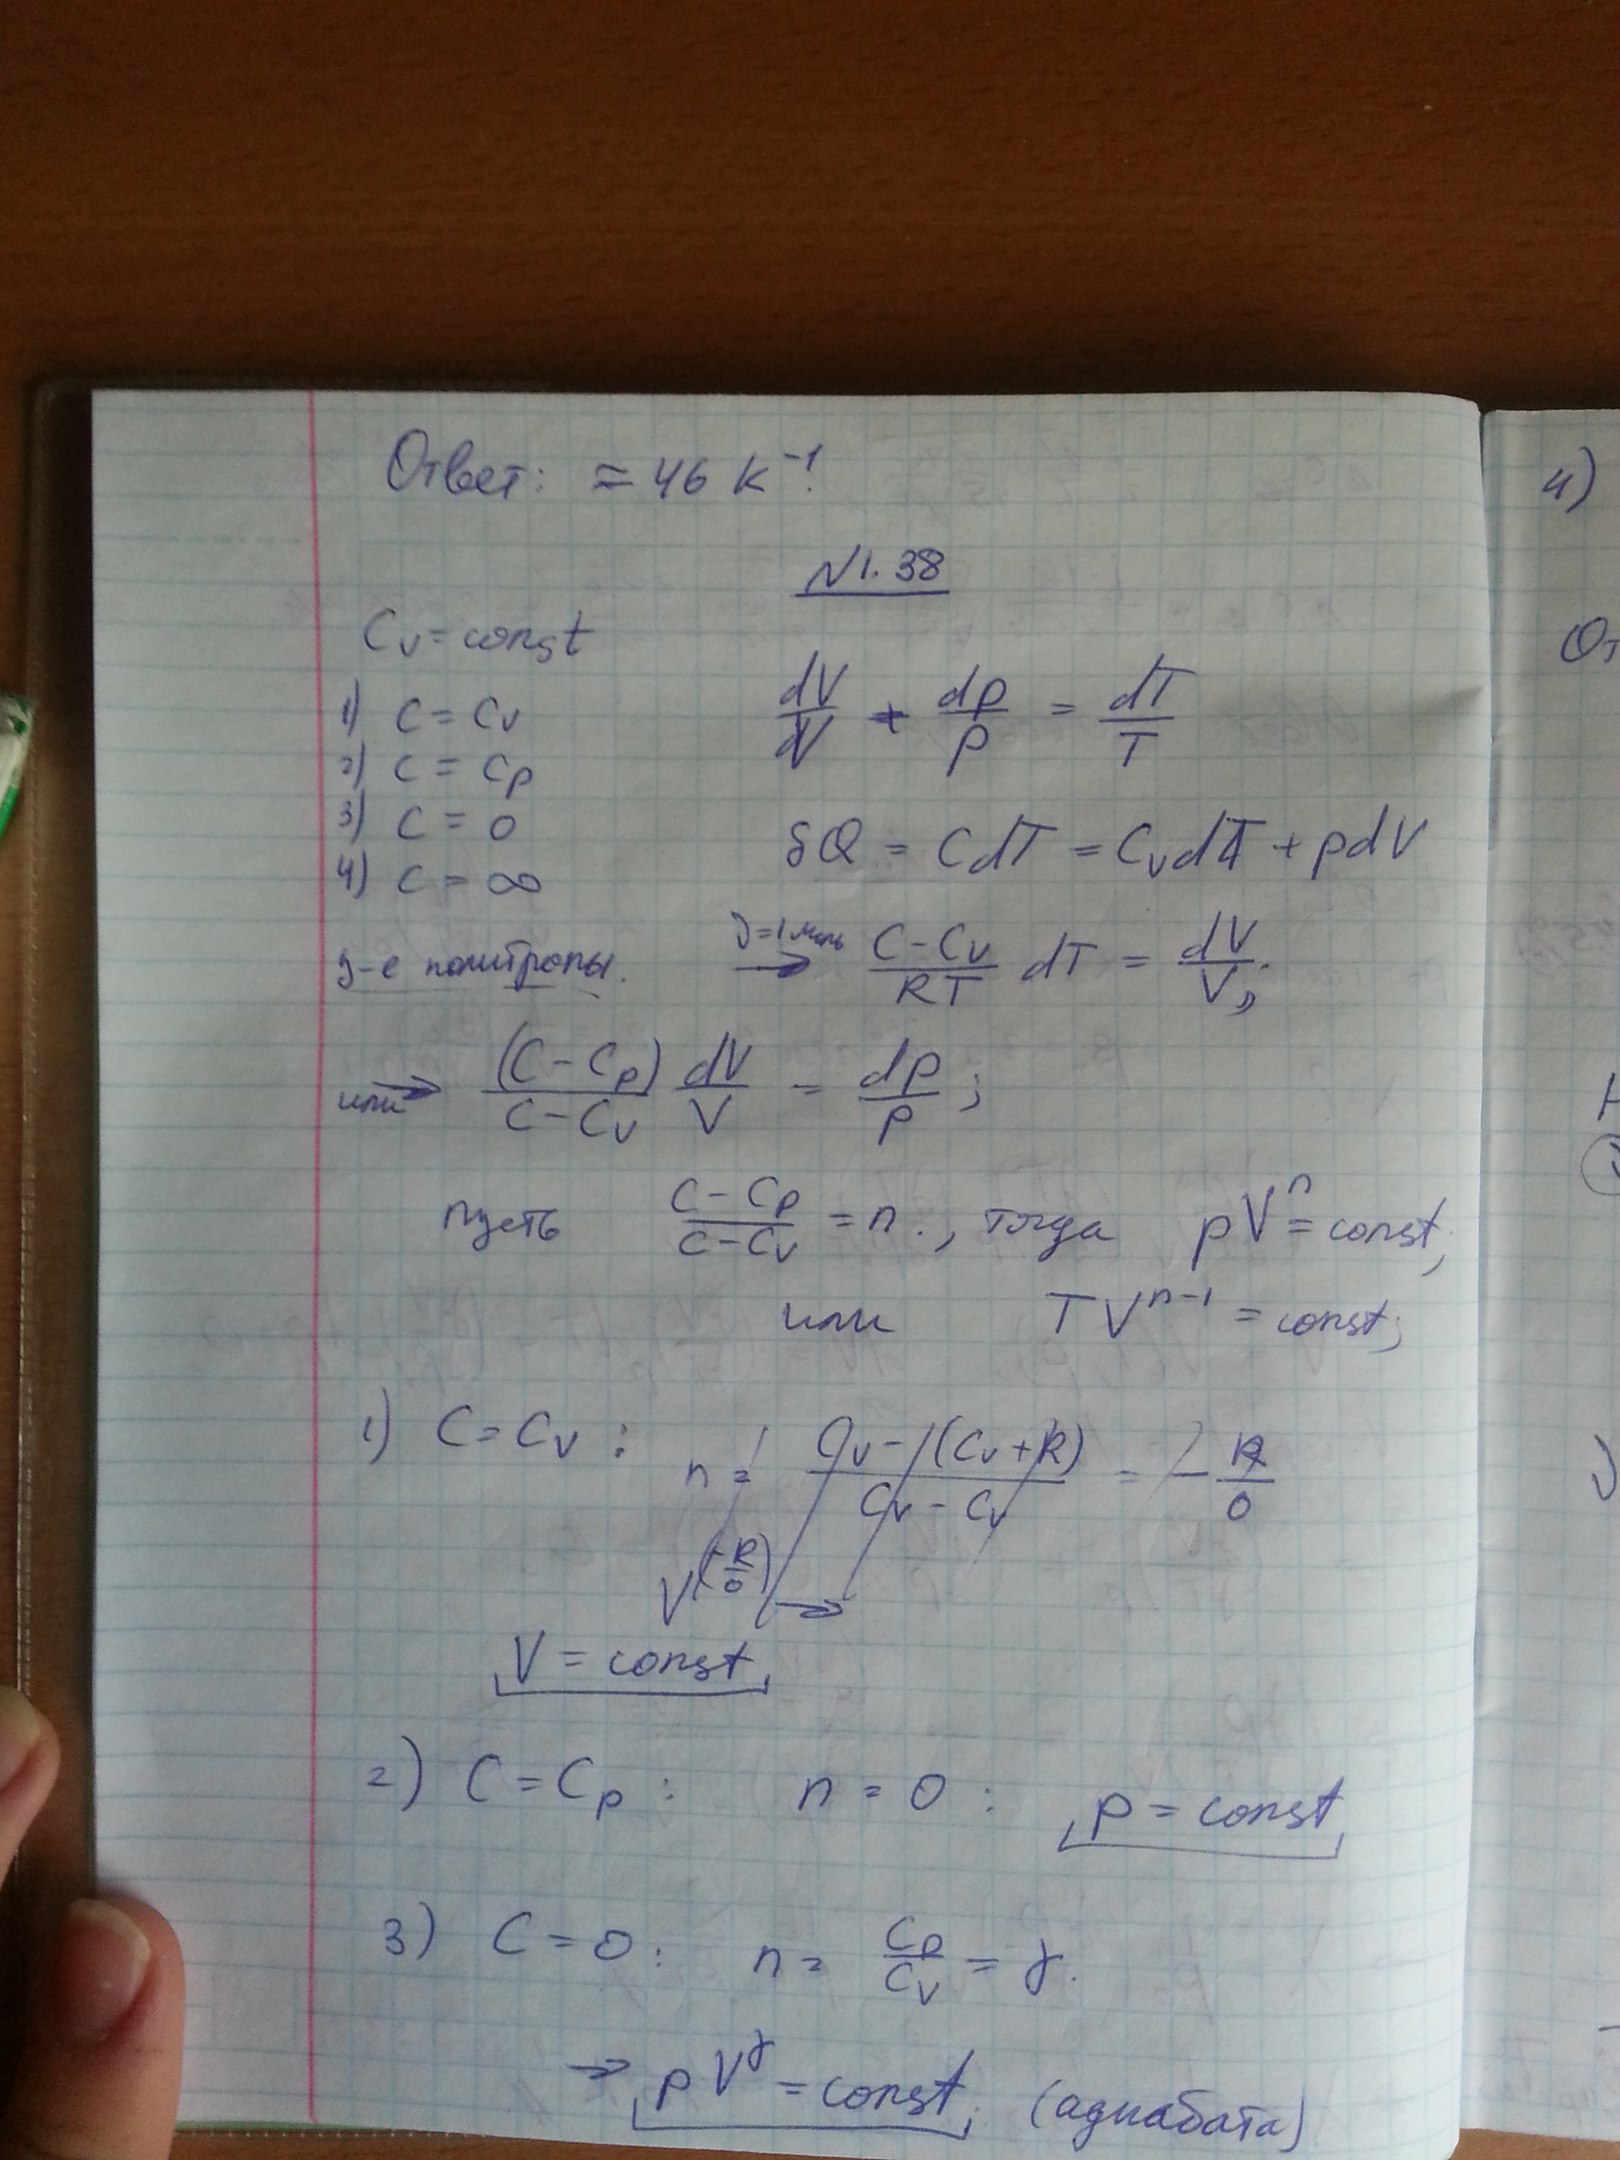 Ответ: ≈ 46 K⁻¹.
N 1.38
Cv = const
1) C = Cv
2) C = Cp
3) C = 0
4) C = ∞
у-е политропы.
dV/V + dp/p = dT/T
δQ = CdT = CvdT + pdV
ν=1 моль → (C - Cv)/(RT) dT = dV/V;
или → (C - Cp)/(C - Cv) dV/V = dp/p;
пусть (C - Cp)/(C - Cv) = n., тогда pVⁿ = const;
или TVⁿ⁻¹ = const;
1) C = Cv : n = (Cv - (Cv + R))/(Cv - Cv) = - R/0
V^(-R/0) →
V = const
2) C = Cp : n = 0 : p = const
3) C = 0 : n = Cp/Cv = γ.
→ pV^γ = const, (адиабата)
4)
От